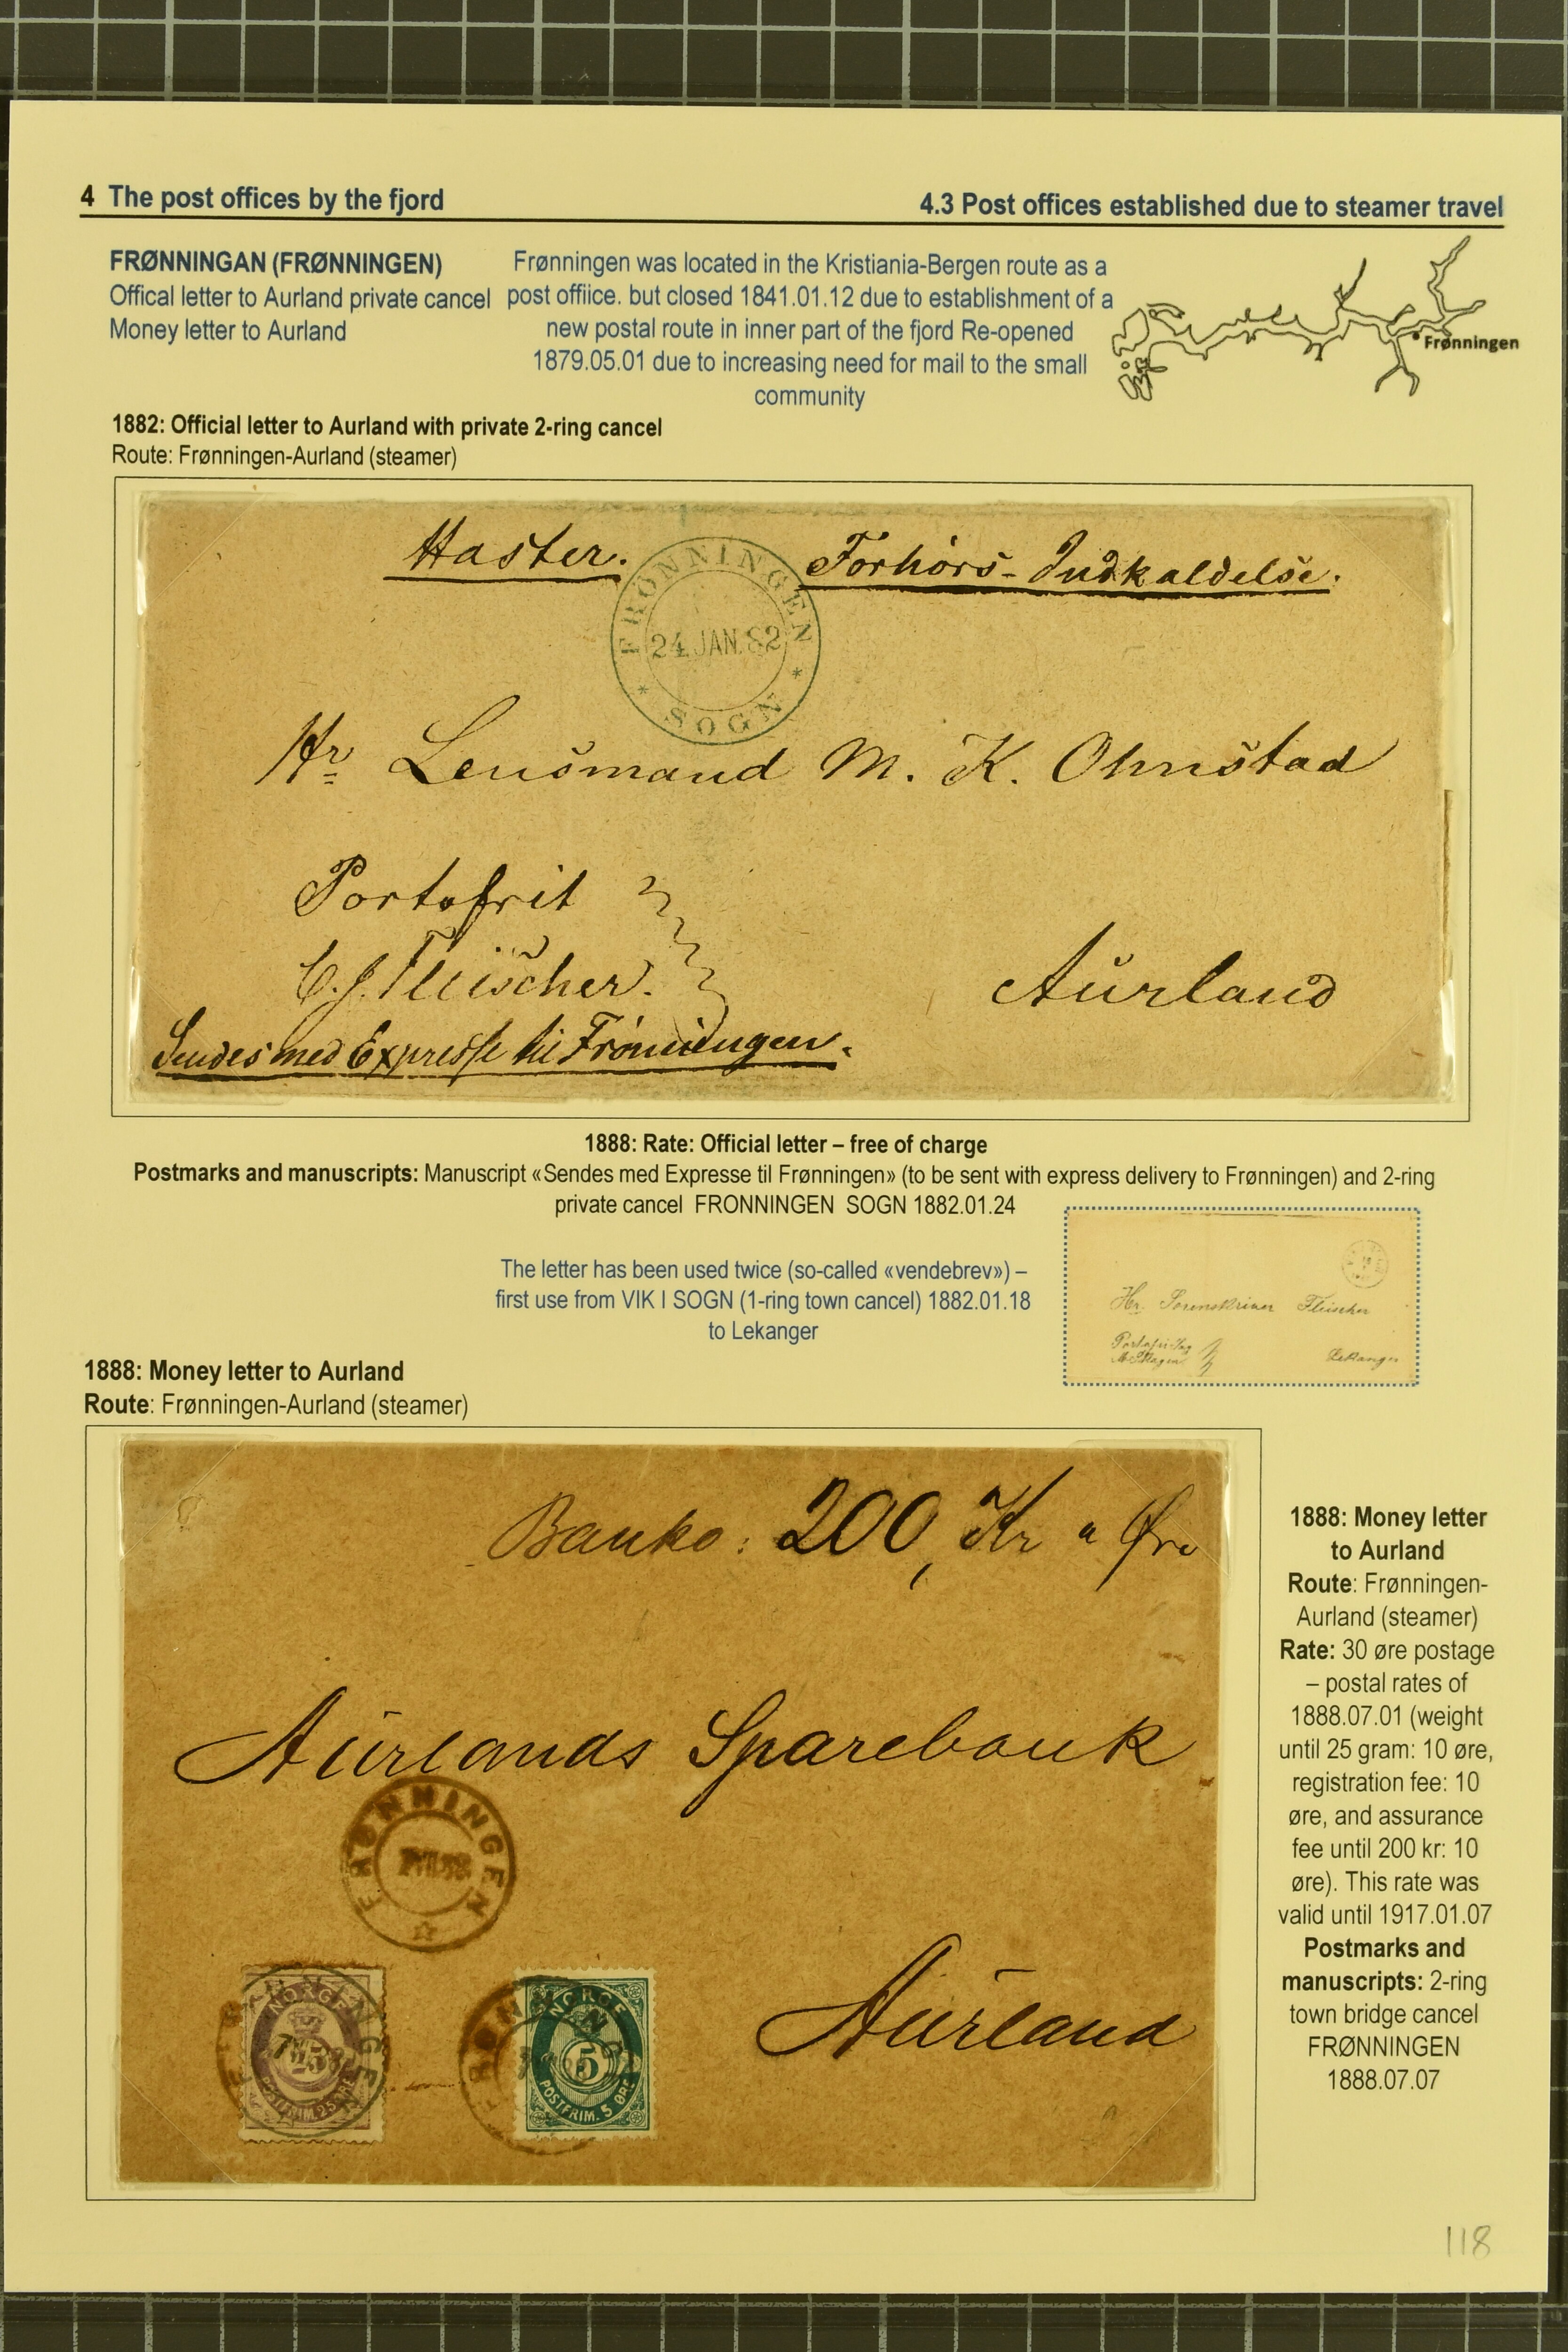 4 The post offices by the fjord
4.3 Post offices established due to steamer travel
FRØNNINGAN (FRØNNINGEN)
Offical letter to Aurland private cancel
Money letter to Aurland
Frønningen was located in the Kristiania-Bergen route as a
post offiice. but closed 1841.01.12 due to establishment of a
new postal route in inner part of the fjord Re-opened
1879.05.01 due to increasing need for mail to the small
community
Frønningen
1882: Official letter to Aurland with private 2-ring cancel
Route: Frønningen-Aurland (steamer)
Haster.
Forhörs-Indkaldelse.
FRÖNNINGEN
24 JAN. 82
* SOGN *
Hr Lensmand M. K. Ohnstad
Portofrit
C.J. Fleischer.
Aurland
Sendes med Expresse til Frönningen.
1888: Rate: Official letter – free of charge
Postmarks and manuscripts: Manuscript «Sendes med Expresse til Frønningen» (to be sent with express delivery to Frønningen) and 2-ring
private cancel FRONNINGEN SOGN 1882.01.24
The letter has been used twice (so-called «vendebrev») –
first use from VIK I SOGN (1-ring town cancel) 1882.01.18
to Lekanger
Hr. Sorenskriver Fleischer
Lekanger
1888: Money letter to Aurland
Route: Frønningen-Aurland (steamer)
Banko: 200, Kr " Øre
Aurlands Sparebank
FRØNNINGEN
Aurland
FRØNNINGEN
NORGE
25
POSTFRIM. 25 ØRE
FRØNNINGEN
NORGE
5
POSTFRIM. 5 ØRE
1888: Money letter
to Aurland
Route: Frønningen-
Aurland (steamer)
Rate: 30 øre postage
– postal rates of
1888.07.01 (weight
until 25 gram: 10 øre,
registration fee: 10
øre, and assurance
fee until 200 kr: 10
øre). This rate was
valid until 1917.01.07
Postmarks and
manuscripts: 2-ring
town bridge cancel
FRØNNINGEN
1888.07.07
118